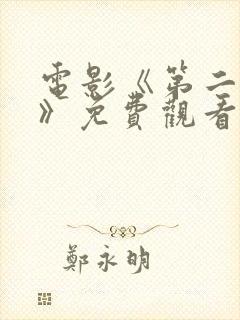 電影《第二
》免費觀看
鄭永明